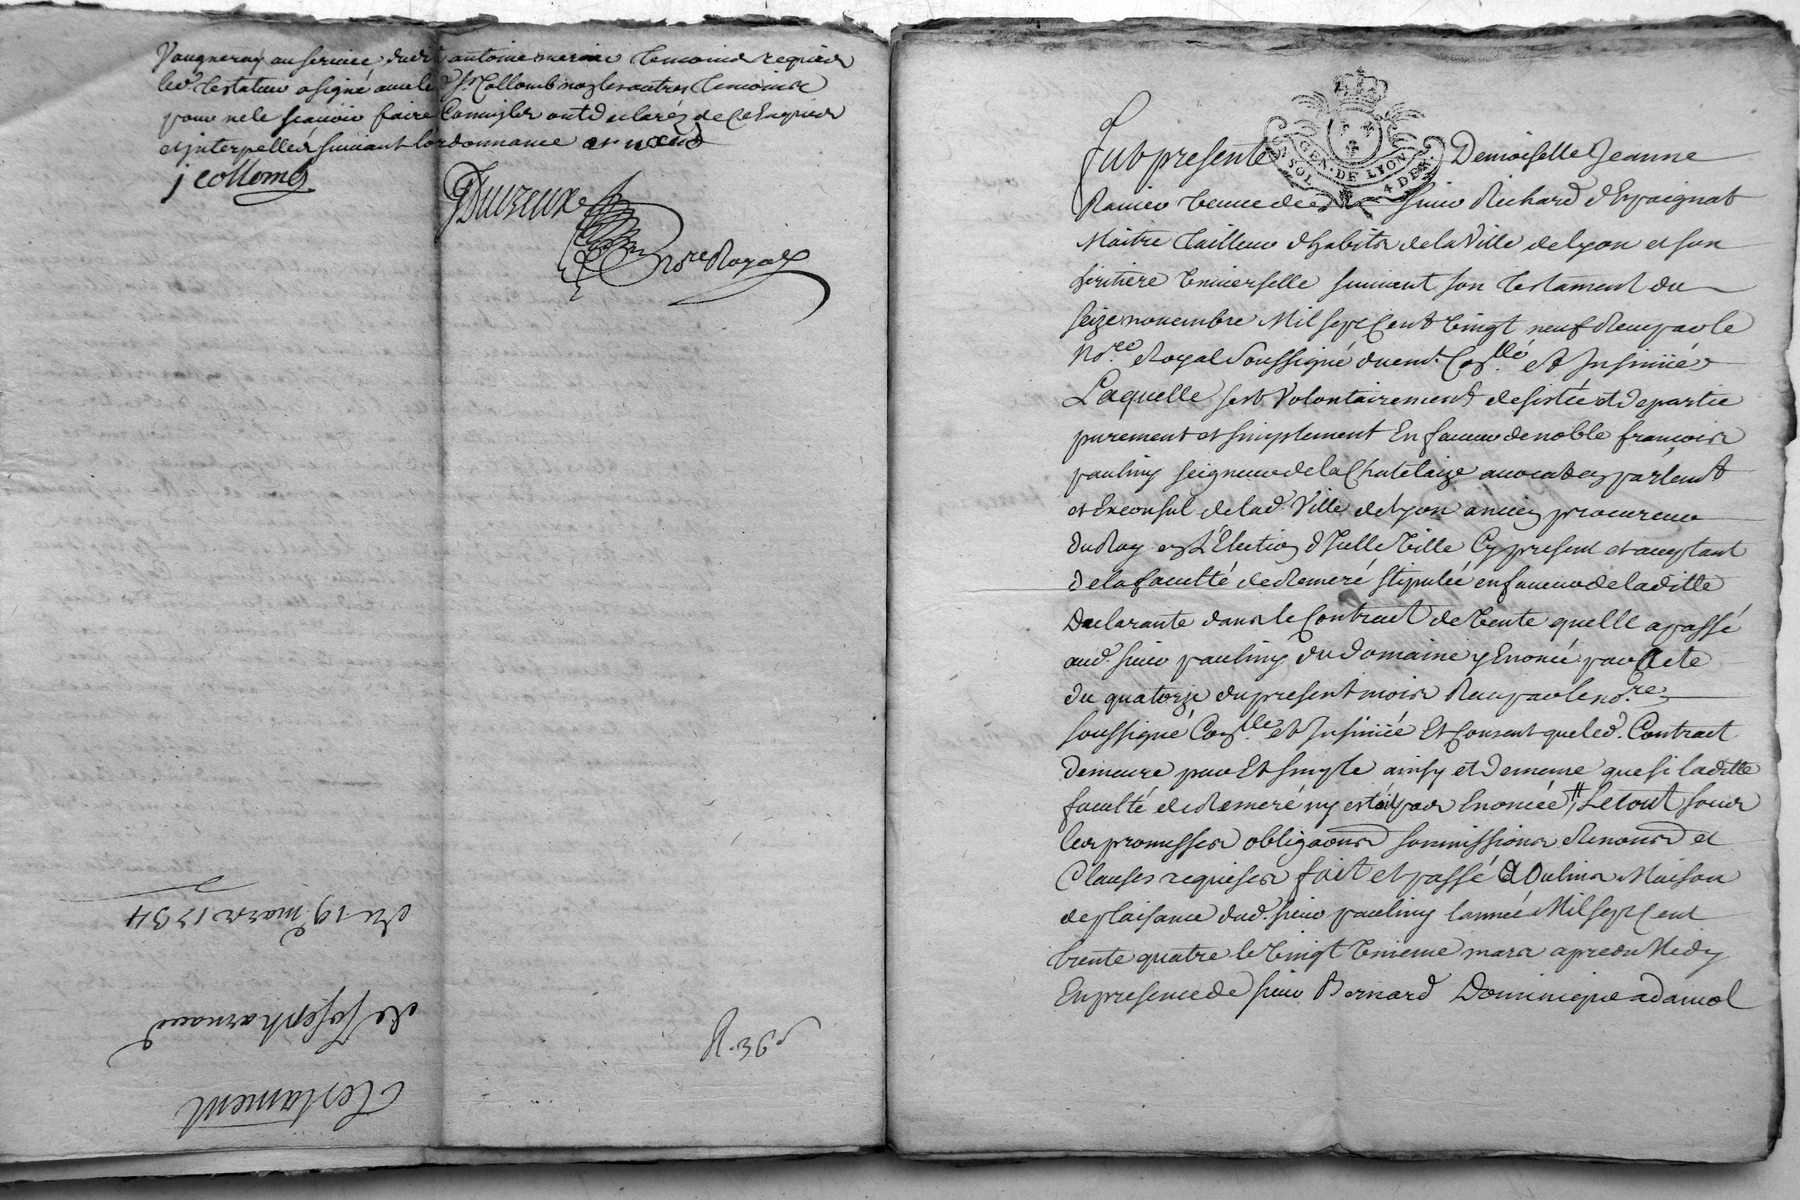 Vaugneray au service dudit antoine mercier temoins requis
led. testateur a signé avec led. Sr. Collomb non les autres temoins
pour ne le scavoir faire comm'ils ont declarés de ce enquis
et interpellés suivant l'ordonnance
j collomb
Duvreux
nore Royal
R. 36 s
Testament
de Joseph arnaud
du 19e mars 1734
GEN. DE LYON
SOL 4 DEN.
Fut presente Demoiselle Jeanne
Ravier veuve de sieur Richard d'Espaignat
Maitre tailleur d'habits de la Ville de Lyon et son
heritiere universelle suivant son testament du
seize novembre Mil sept cent vingt neuf Receu par le
No.re Royal soussigné duem.t Con.llé et Insinué
Laquelle s'est Volontairement desistée et departie
purement et simplement En faveur de noble francois
paulmy seigneur de la Chatelaize avocat en parlem.t
et Exconsul de lad. Ville de Lyon ancien procureur
du Roy en L'Election d'Icelle Ville Cy present et acceptant
De la faculté de Remeré stipulée en faveur de laditte
Declarante dans le Contract de Vente quelle a passé
aud. sieur paulmy du domaine y Enoncé par Acte
du quatorze du present mois Receu par le no.re
soussigné Con.llé et Insinué Et Consent que led. Contract
demeure pur Et simple ainsy et de meme que si laditte
faculté de Remeré n'y estoit pas Enoncée # Le tout sous
les promesses obligaons soumissions Renons et
Clauses requises fait et passé a Oulins Maison
de plaisance dud. sieur paulmy l'année Mil sept cent
trente quatre le vingt unieme mars apres Midy
En presence de sieur Bernard Dominique adamol